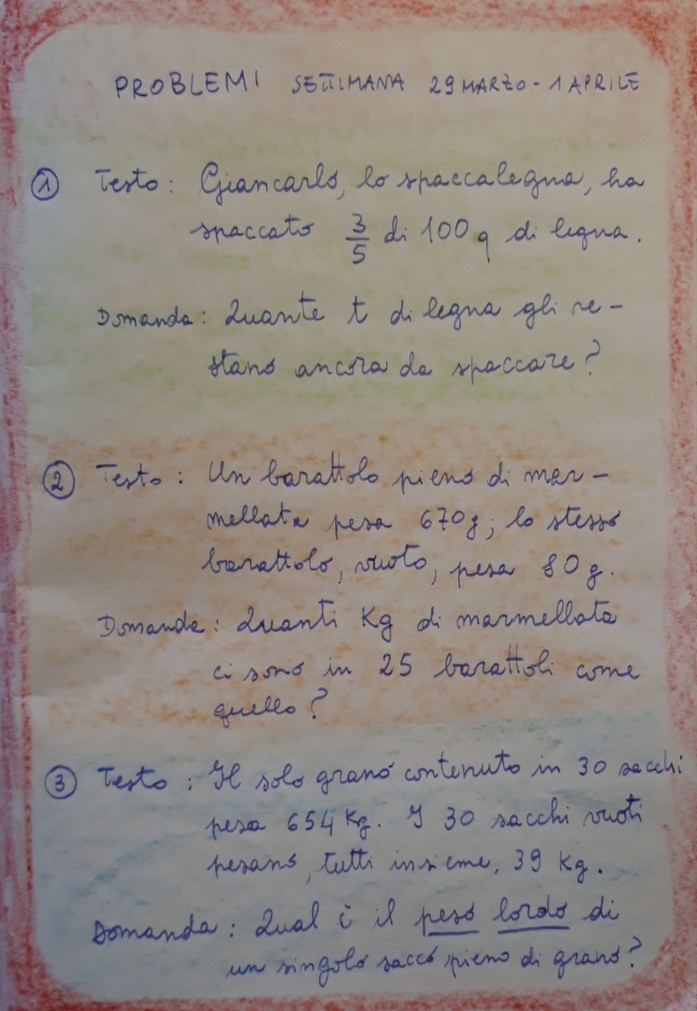 PROBLEMI SETTIMANA 29 MARZO - 1 APRILE
① Testo: Giancarlo, lo spaccalegna, ha
spaccato 3/5 di 100 q di legna.
Domanda: Quante t di legna gli re-
stano ancora da spaccare?
② Testo: Un barattolo pieno di mar-
mellata pesa 670 g; lo stesso
barattolo, vuoto, pesa 80 g.
Domanda: Quanti Kg di marmellata
ci sono in 25 barattoli come
quello?
③ Testo: Il solo grano contenuto in 30 sacchi
pesa 654 Kg. I 30 sacchi vuoti
pesano, tutti insieme, 39 Kg.
Domanda: Qual è il peso lordo di
un singolo sacco pieno di grano?